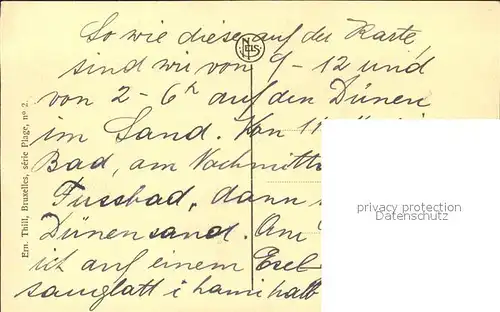 So wie diese auf der Karte,
sind wir von 9-12 und
von 2-6h auf den Dünen
im Sand. Von 11
Bad, am Nachmitta
Fussbad, dann
Dünensand. Am
ich auf einem Esel
sauglatt
NELS
Ern. Thill, Bruxelles, série Plage, n° 2.
privacy protection
Datenschutz